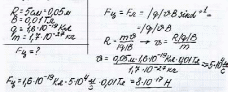 R = 5см = 0,05м
B = 0,01Тл
q = 1,6·10⁻¹⁹Кл
m = 1,7·10⁻²⁷кг
Fц = ?
Fц = Fл = |q|vB sinα
R = mv / |q|B → v = R|q|B / m
v = 0,05м·1,6·10⁻¹⁹Кл·0,01Тл / 1,7·10⁻²⁷кг = 5·10⁴ м/с
Fц = 1,6·10⁻¹⁹Кл · 5·10⁴ м/с · 0,01Тл = 8·10⁻¹⁷ Н